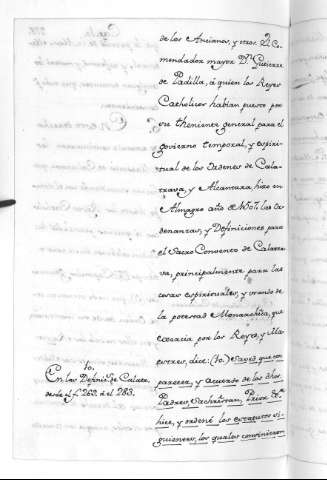 de los Ancianos, y otros. El Co-
mendador mayor Dn. Gutierre
de Padilla, á quien los Reyes
Catholicos habian puesto por
su theniente general para el
govierno temporal, y espiri-
tual de las Ordenes de Cala-
trava, y Alcantara hizo en
Almagro año de las Or-
denanzas, y Definiciones para
el Sacro Convento de Calatra-
va, principalmente para las
cosas espirituales, y usando de
la potestad Monarchica, que
exercia por los Reyes, y Ma-
estres, dice: (10.) que con
parecer, y acuerdo de los dhos.
Padres, Sachristan, Prior &a.
hice, y ordené los estatutos si-
guientes, los quales convinieron
10.
En las Definics. de Calatra.
desde el f. 260. á el 283.